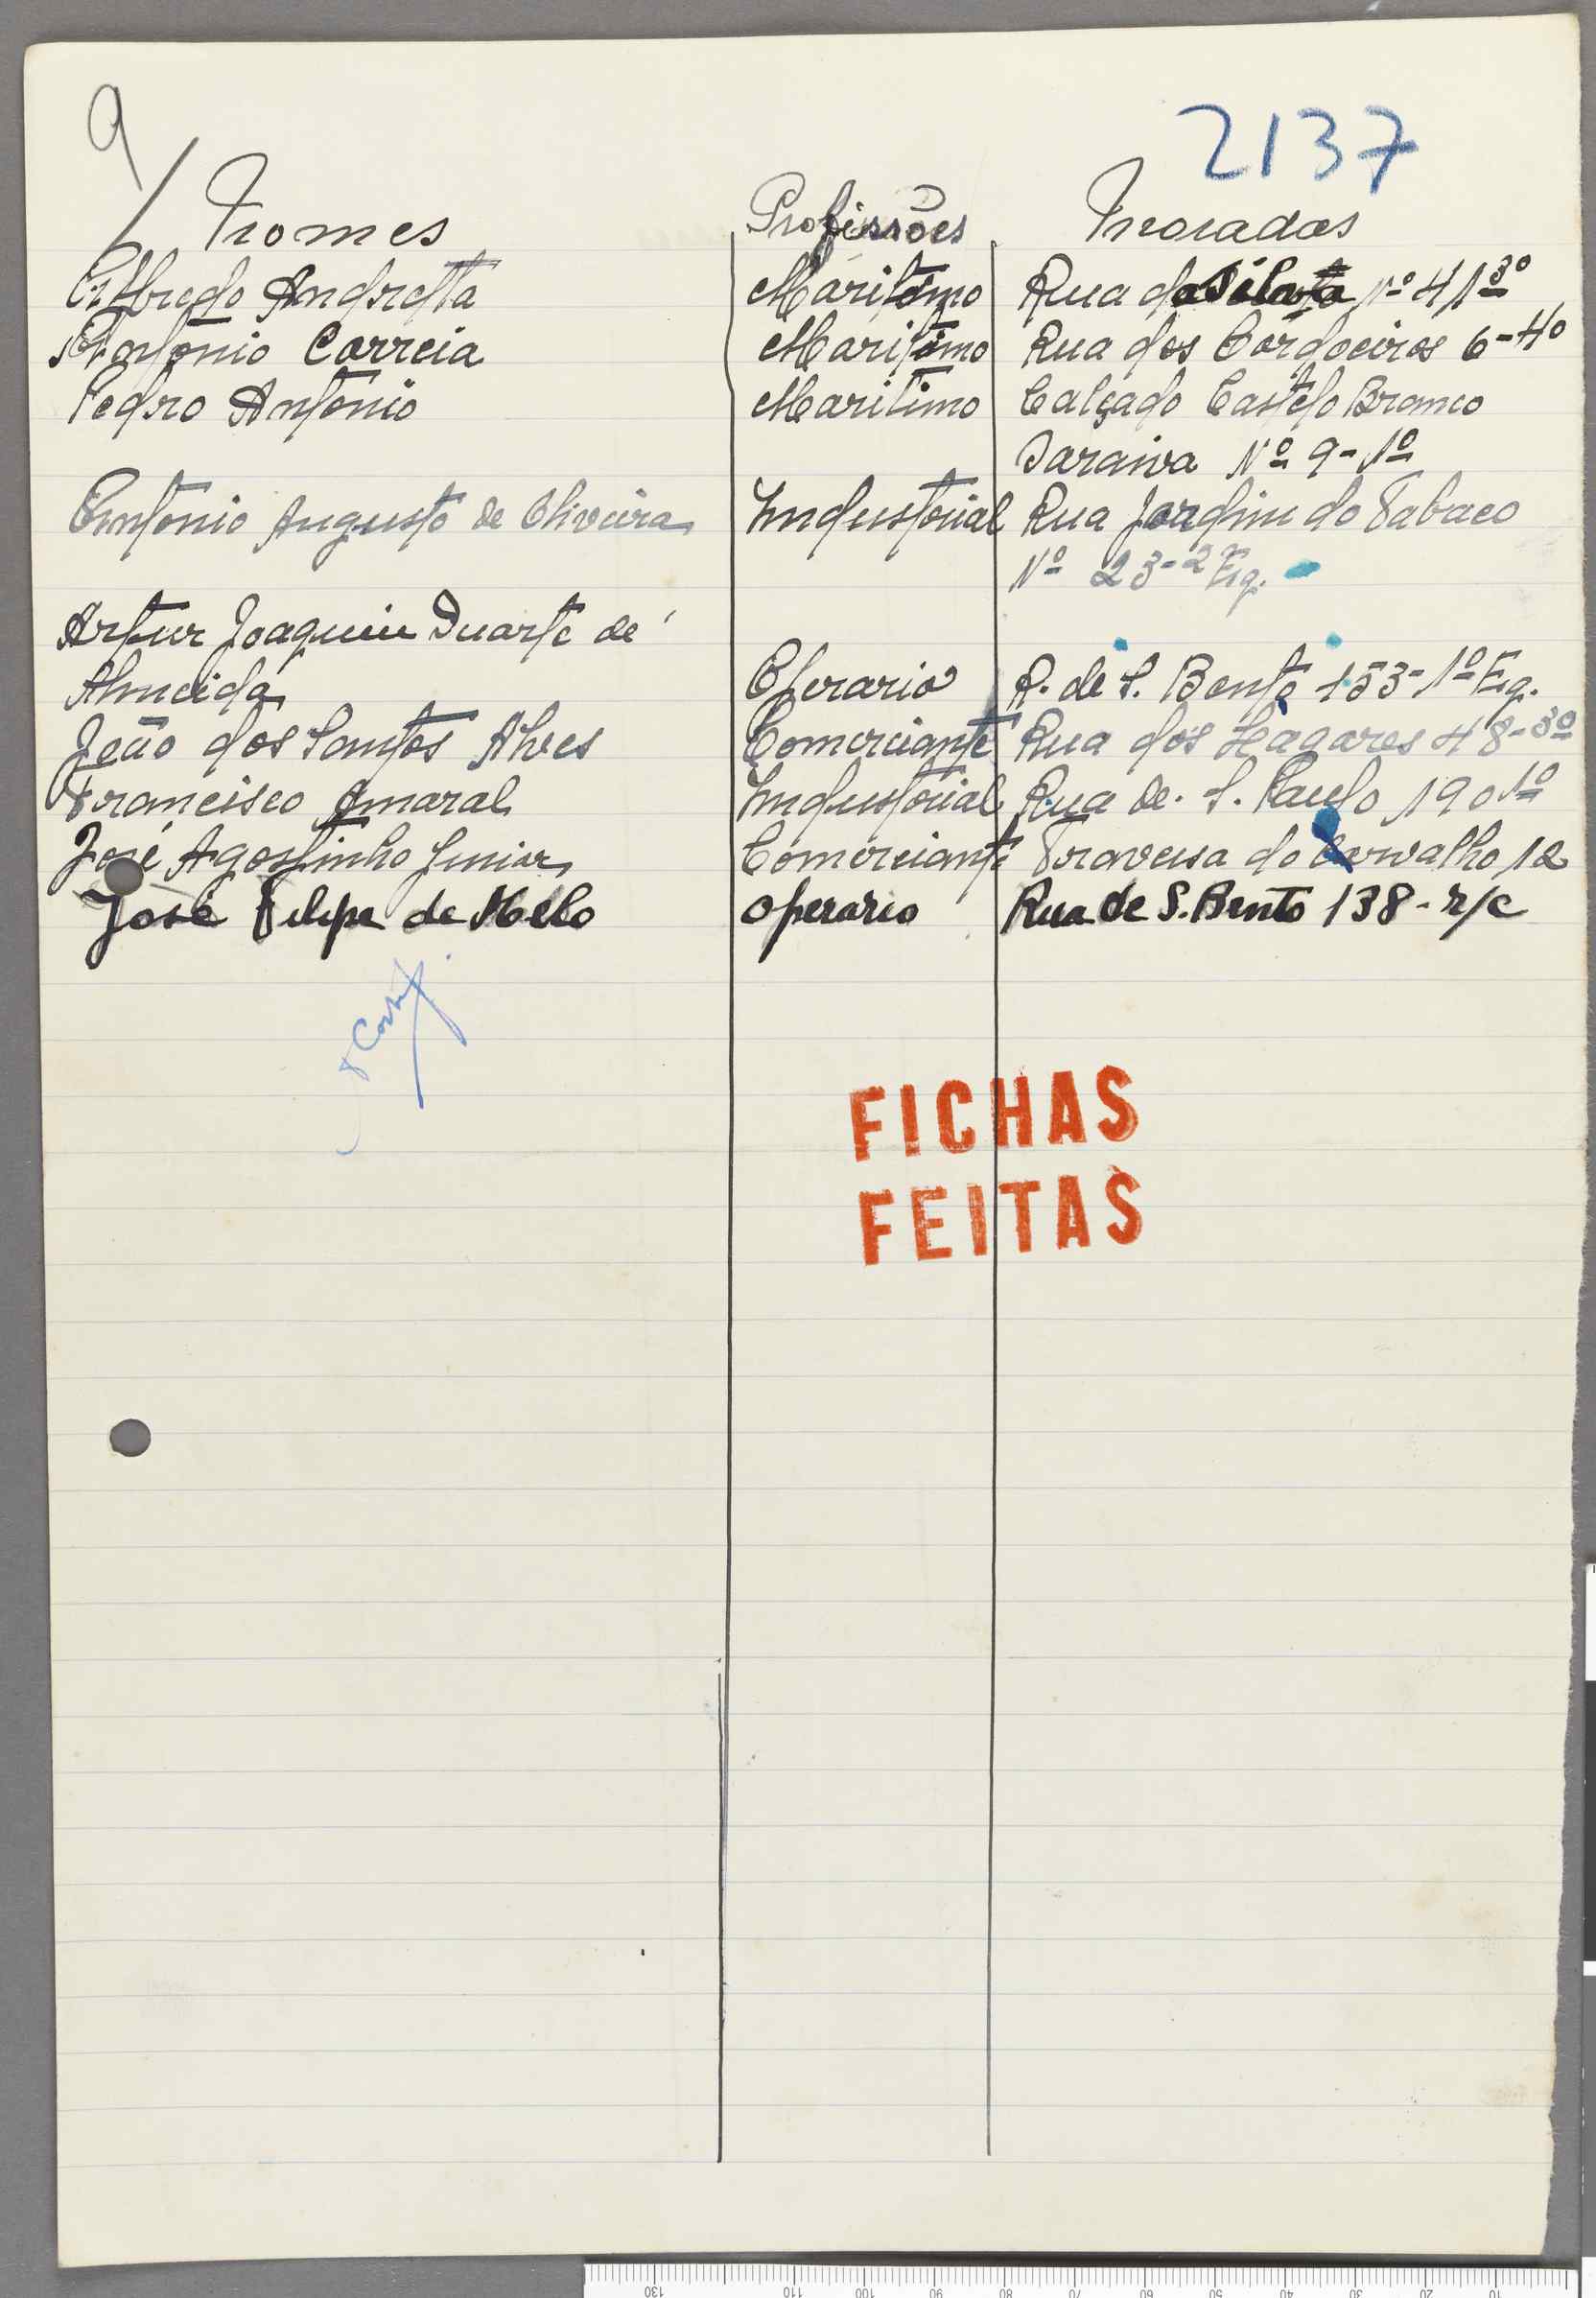 9
2137
Nomes Profissões Moradas
Alfredo Andretta Maritimo Rua da Silva Nº 41 3º
Antonio Correia Maritimo Rua dos Cordoeiros 6-4º
Pedro Antonio Maritimo Calçado Castelo Branco
Saraiva Nº 9-1º
Antonio Augusto de Oliveira Industrial Rua Jardim do Tabaco
Nº 23-2º Esq.
Artur Joaquim Duarte de
Almeida Operario R. de S. Bento 153-1º Esq.
João dos Santos Alves Comerciante Rua dos Lagares 48-3º
Francisco Amaral Industrial Rua de S. Paulo 190 1º
José Agostinho Junior Comerciante Travessa do Carvalho 12
José Filipe de Mello operario Rua de S. Bento 138-r/c
FICHAS
FEITAS
130 110 100 90 80 70 60 50 40 30 20 10